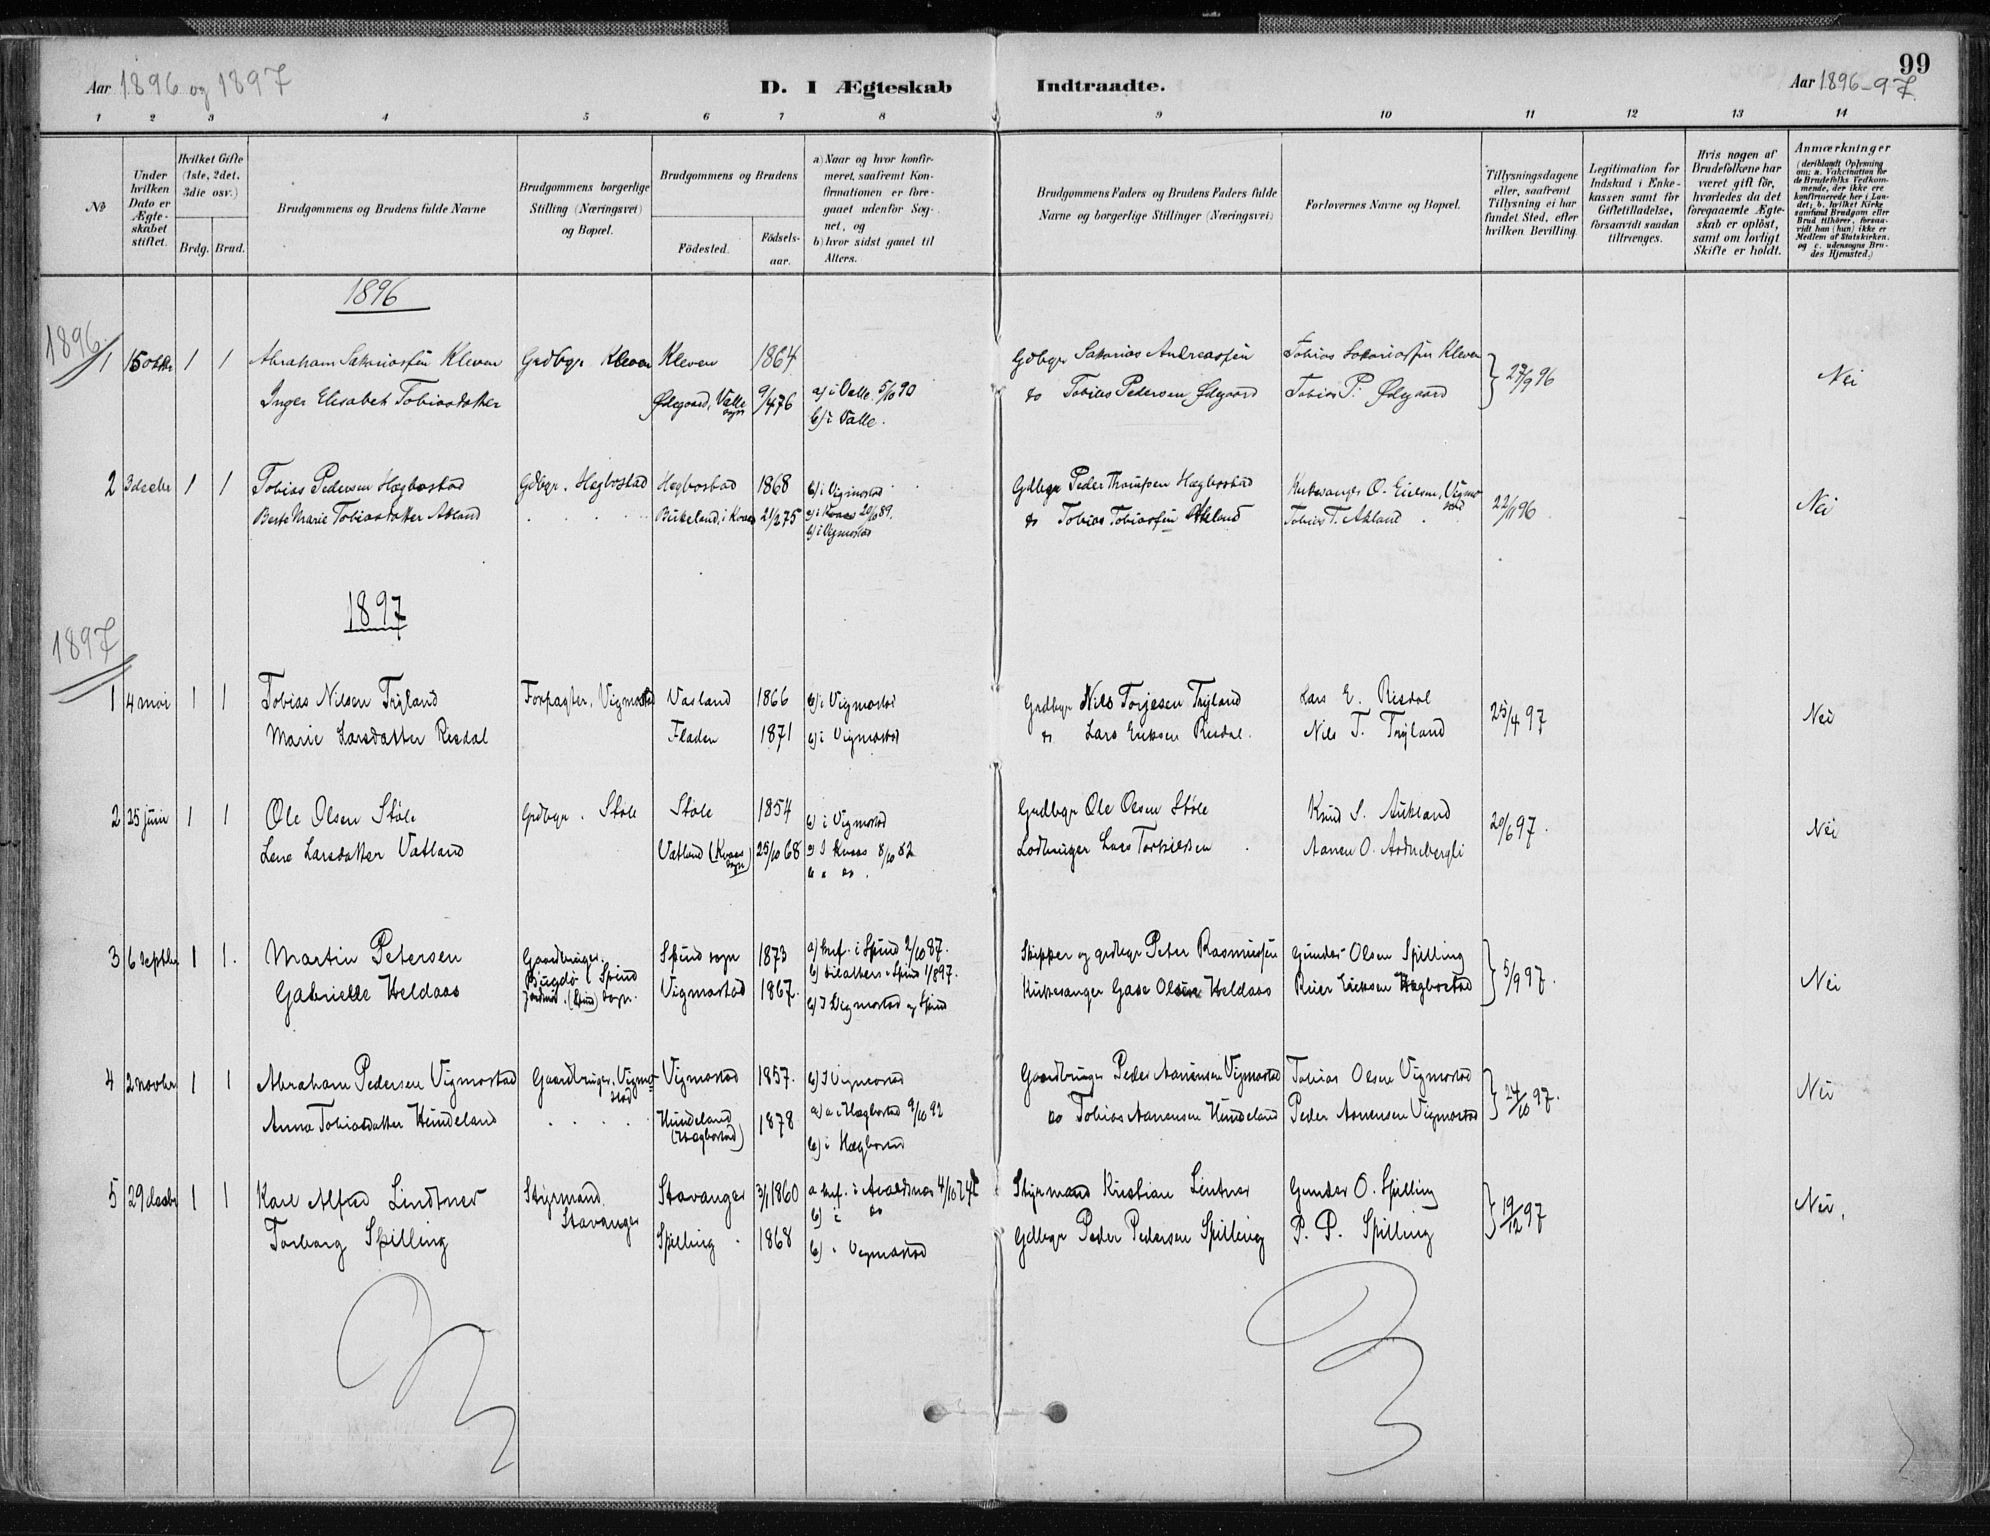 99
Aar 1896 og 1897
D. I Ægteskab Indtraadte.
Aar 1896-97.
1 2 3 4 5 6 7 8 9 10 11 12 13 14
No
Under hvilken Dato er Ægteskabet stiftet.
Hvilket Gifte (1ste, 2det, 3die osv.)
Brdg. Brud.
Brudgommens og Brudens fulde Navne
Brudgommens borgerlige Stilling (Næringsvei) og Bopæl.
Brudgommens og Brudens
Fødested. Fødselsaar.
a) Naar og hvor konfirmeret, saafremt Konfirmationen er foregaaet udenfor Sognet, og
b) hvor sidst gaaet til Alters.
Brudgommens Faders og Brudens Faders fulde Navne og borgerlige Stillinger (Næringsvei)
Forlovernes Navne og Bopæl.
Tillysningsdagene eller, saafremt Tillysning ei har fundet Sted, efter hvilken Bevilling.
Legitimation for Indskud i Enkekassen samt for Giftetilladelse, forsaavidt saadan tiltrænges.
Hvis nogen af Brudefolkene har været gift før, hvorledes da det foregaaende Ægteskab er opløst, samt om lovligt Skifte er holdt.
Anmærkninger
(deriblandt Oplysning om: a. Vakcination for de Brudefolks Vedkommende, der ikke ere konfirmerede her i Landet; b. hvilket Kirkesamfund Brudgom eller Brud tilhører, forsaavidt han (hun) ikke er Medlem af Statskirken, og c. udensogns Brudes Hjemsted.)
1896
1896
1 15 oktbr 1 1 Abraham Sakariassen Kleven Grdbgr Kleven Kleven 1864 Gdbgr Sakarias Andreassen Tobias Sakariassen Kleven 27/9 96 Nei
Inger Elisabet Tobiasdatter Ødegaard, Valle sogn 9/4 76 a) i Valle 5/10 90 do Tobias Pedersen Ødegaard Tobias P. Ødegaard
b) i Valle.
2 3 decbr 1 1 Tobias Pedersen Hægbostad Gdbgr. Hægbostad Hægbostad 1868 b) i Vigmostad Gdbgr Peder Thomassen Hægbostad Kirkesanger O. Eielsen, Vigmostad 22/11 96 Nei
Berte Marie Tobiasdatter Akland Birkeland, i Kvaas 21/2 75 a) i Kvaas 20/10 89. do Tobias Tobiassen Akland Tobias T. Akland
b) i Vigmostad
1897
1897
1 4 mai 1 1 Tobias Nilsen Tryland Forpagter, Vigmostad Vasland 1866 b) i Vigmostad Grdbgr Nils Torjesen Tryland Lars E. Risdal 25/4 97 Nei
Marie Larsdatter Risdal Fladen 1871 b) i Vigmostad do Lars Eriksen Risdal. Nils T. Tryland
2 25 juni 1 1 Ole Olsen Støle Grdbgr. Støle Støle 1854 b) i Vigmostad Grdbgr Ole Olsen Støle Knud S. Aukland 20/6 97. Nei
Lene Larsdatter Vatland Vatland (Kvaas sogn) 25/10 68 a) I Kvaas 8/10 82 Lars Aanen O.
b " do.
3 6 septbr 1 1. Martin Petersen Gaardbruger, Spind sogn 1873 a) knf. i Spind 2/10 87. Skipper og grdbgr Peter Rasmussen Gunder Olsen Spilling 5/9 97. Nei
Gabrielle Heldaas (Spind) sogn. Vigmostad 1867. b) til alters i Spind 1/8 97. Kirkesanger Gase Olsen Heldaas Reier Eriksen Hægbostad
b) I Vigmostad og Spind
4 2 novbr 1 1 Abraham Pedersen Vigmostad Gaardbruger, Vigmostad Vigmostad 1857. b) I Vigmostad Gaardbruger Peder Aanensen Vigmostad Tobias Olsen Vigmostad 24/10 97. Nei
Anna Tobiasdatter Hundeland Hundeland (Hægbostad) 1878 a) i Hægbostad 9/10 92 do Tobias Aanensen Hundeland Peder Aanensen Vigmostad
b) i Hægbostad
5 29 decbr 1 1 Karl Alfred Lindtner Styrmand Stavanger 3/1 1860 a knf. i Avaldsnes 4/10 74 Styrmand Kristian Lintner Gunder O. Spilling 19/12 97 Nei.
Stavanger b) i do
Torborg Spilling Spilling. 1868 b) i Vigmostad Gdbgr Peder Pedersen Spilling P. P. Spilling